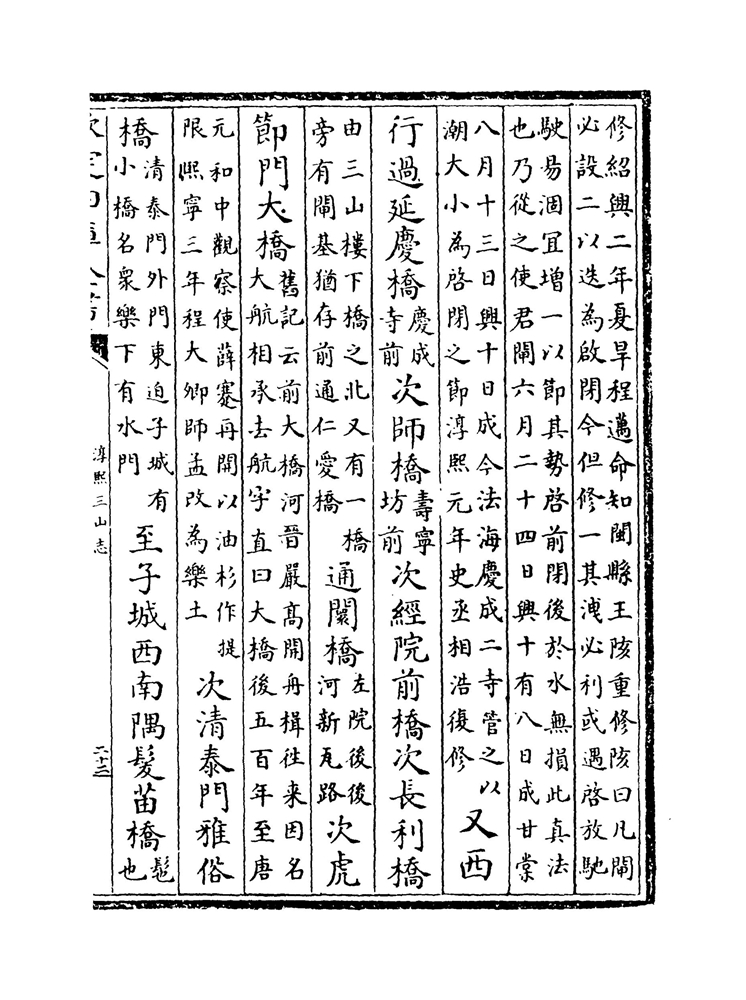 修紹興二年夏旱程邁命知閩縣王陔重修陔曰凡閘
必設二以迭為啟閉今但修一其洩必利或遇啓放馳
駛易涸冝增一以節其勢啓前閉後於水無損此真法
也乃從之使君閘六月二十四日興十有八日成甘棠
八月十三日興十日成今法海慶成二寺管之以
潮大小為啓閉之節淳熙元年史丞相浩復修
又西
行過延慶橋慶成寺前次師橋壽寧坊前次經院前橋次長利橋
由三山樓下橋之北又有一橋
旁有閘基猶存前通仁愛橋
通闤橋左院後後河新瓦路次虎
節門大橋
舊記云前大橋河晉嚴高開舟楫往来因名
大航相承去航字直曰大橋後五百年至唐
元和中觀察使薛蹇再開以油杉作提
限熙寧三年程大卿師孟改為樂土
次清泰門雅俗
橋
清泰門外門東迫子城有
小橋名衆樂下有水門
至子城西南隅髮苗橋髱也
欽定四庫全書
淳熙三山志
二十三